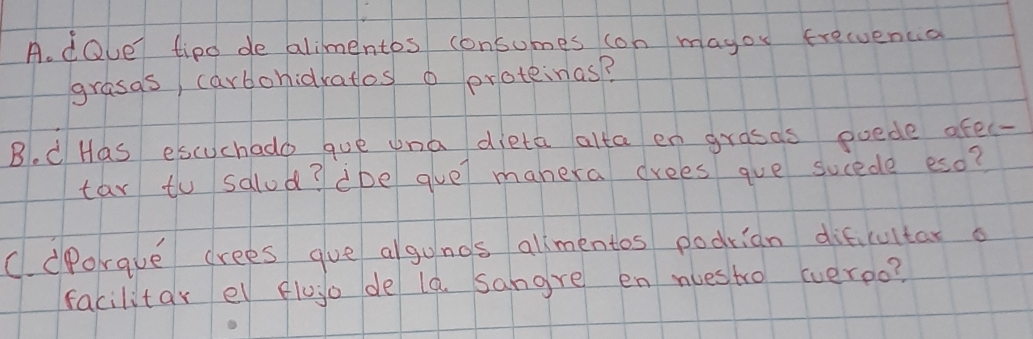 A. ¿Qué tipo de alimentos consumes con mayor frecuencia
grasas, carbohidratos o proteinas?
B. ¿Has escuchado que una dieta alta en grasas puede afec-
tar tu salud? ¿De qué manera crees que sucede eso?
C. ¿Porqué crees que algunos alimentos podrían dificultar o
facilitar el flujo de la sangre en nuestro cuerpo?